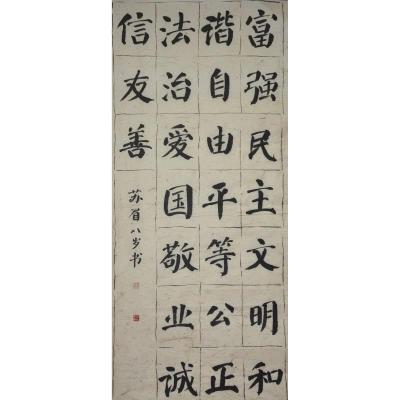 富强民主文明和
谐自由平等公正
法治爱国敬业诚
信友善
苏眉八岁书